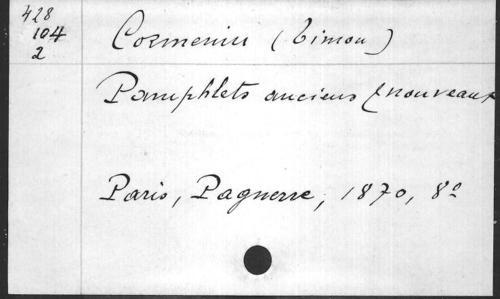 428
104
2
Cormenin (Timon)
Pamphlets anciens & nouveaux
Paris, Pagnerre, 1870, 8º